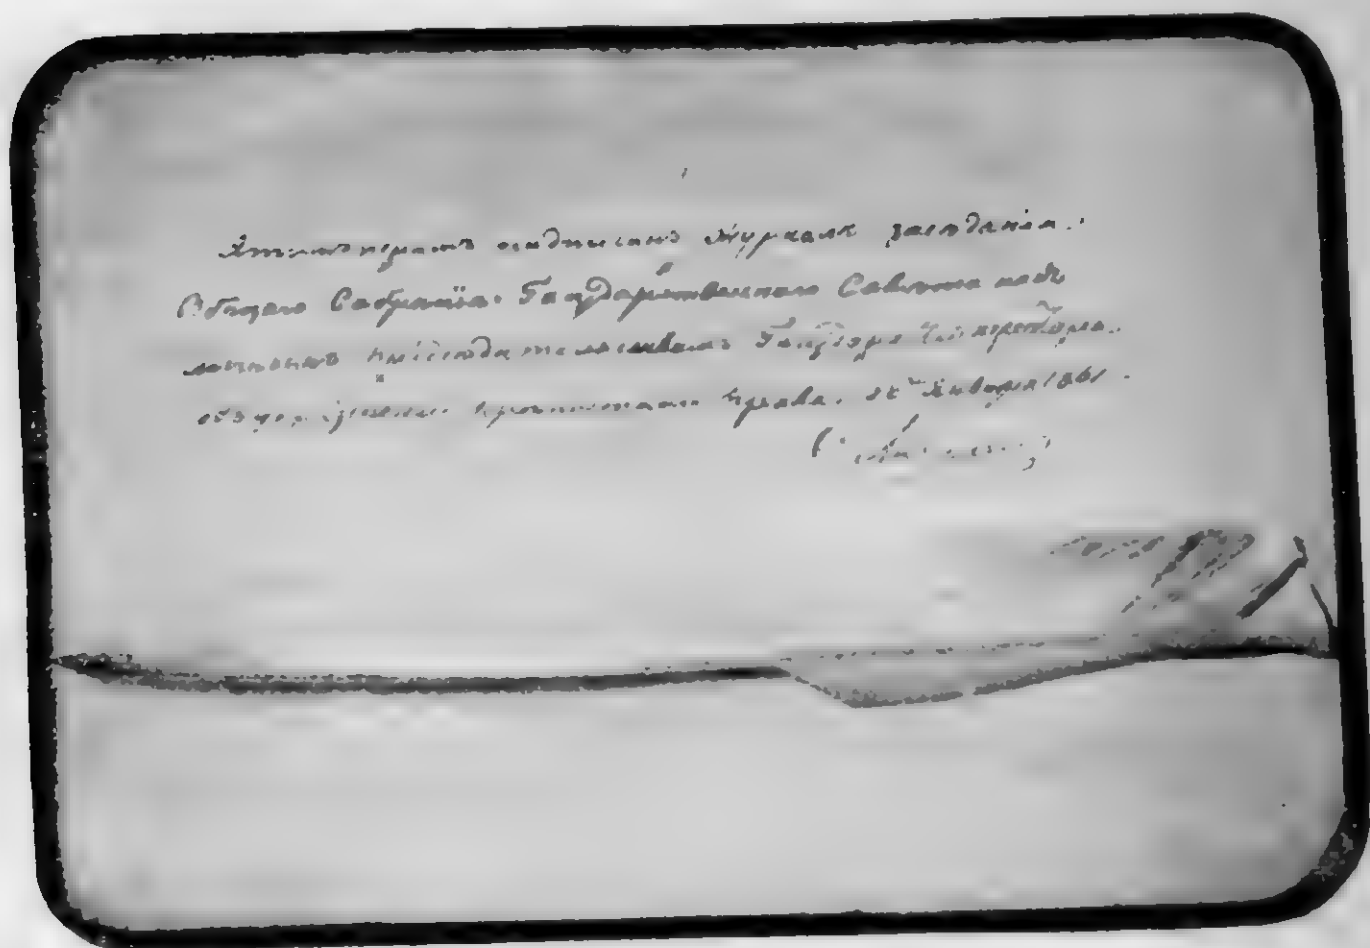 Этимъ перомъ подписанъ Журналъ заседанія
Общаго Собранія Государственнаго Совета подъ
личнымъ председательствомъ Государя Императора
объ упраздненіи крепостнаго права. Января 1861.